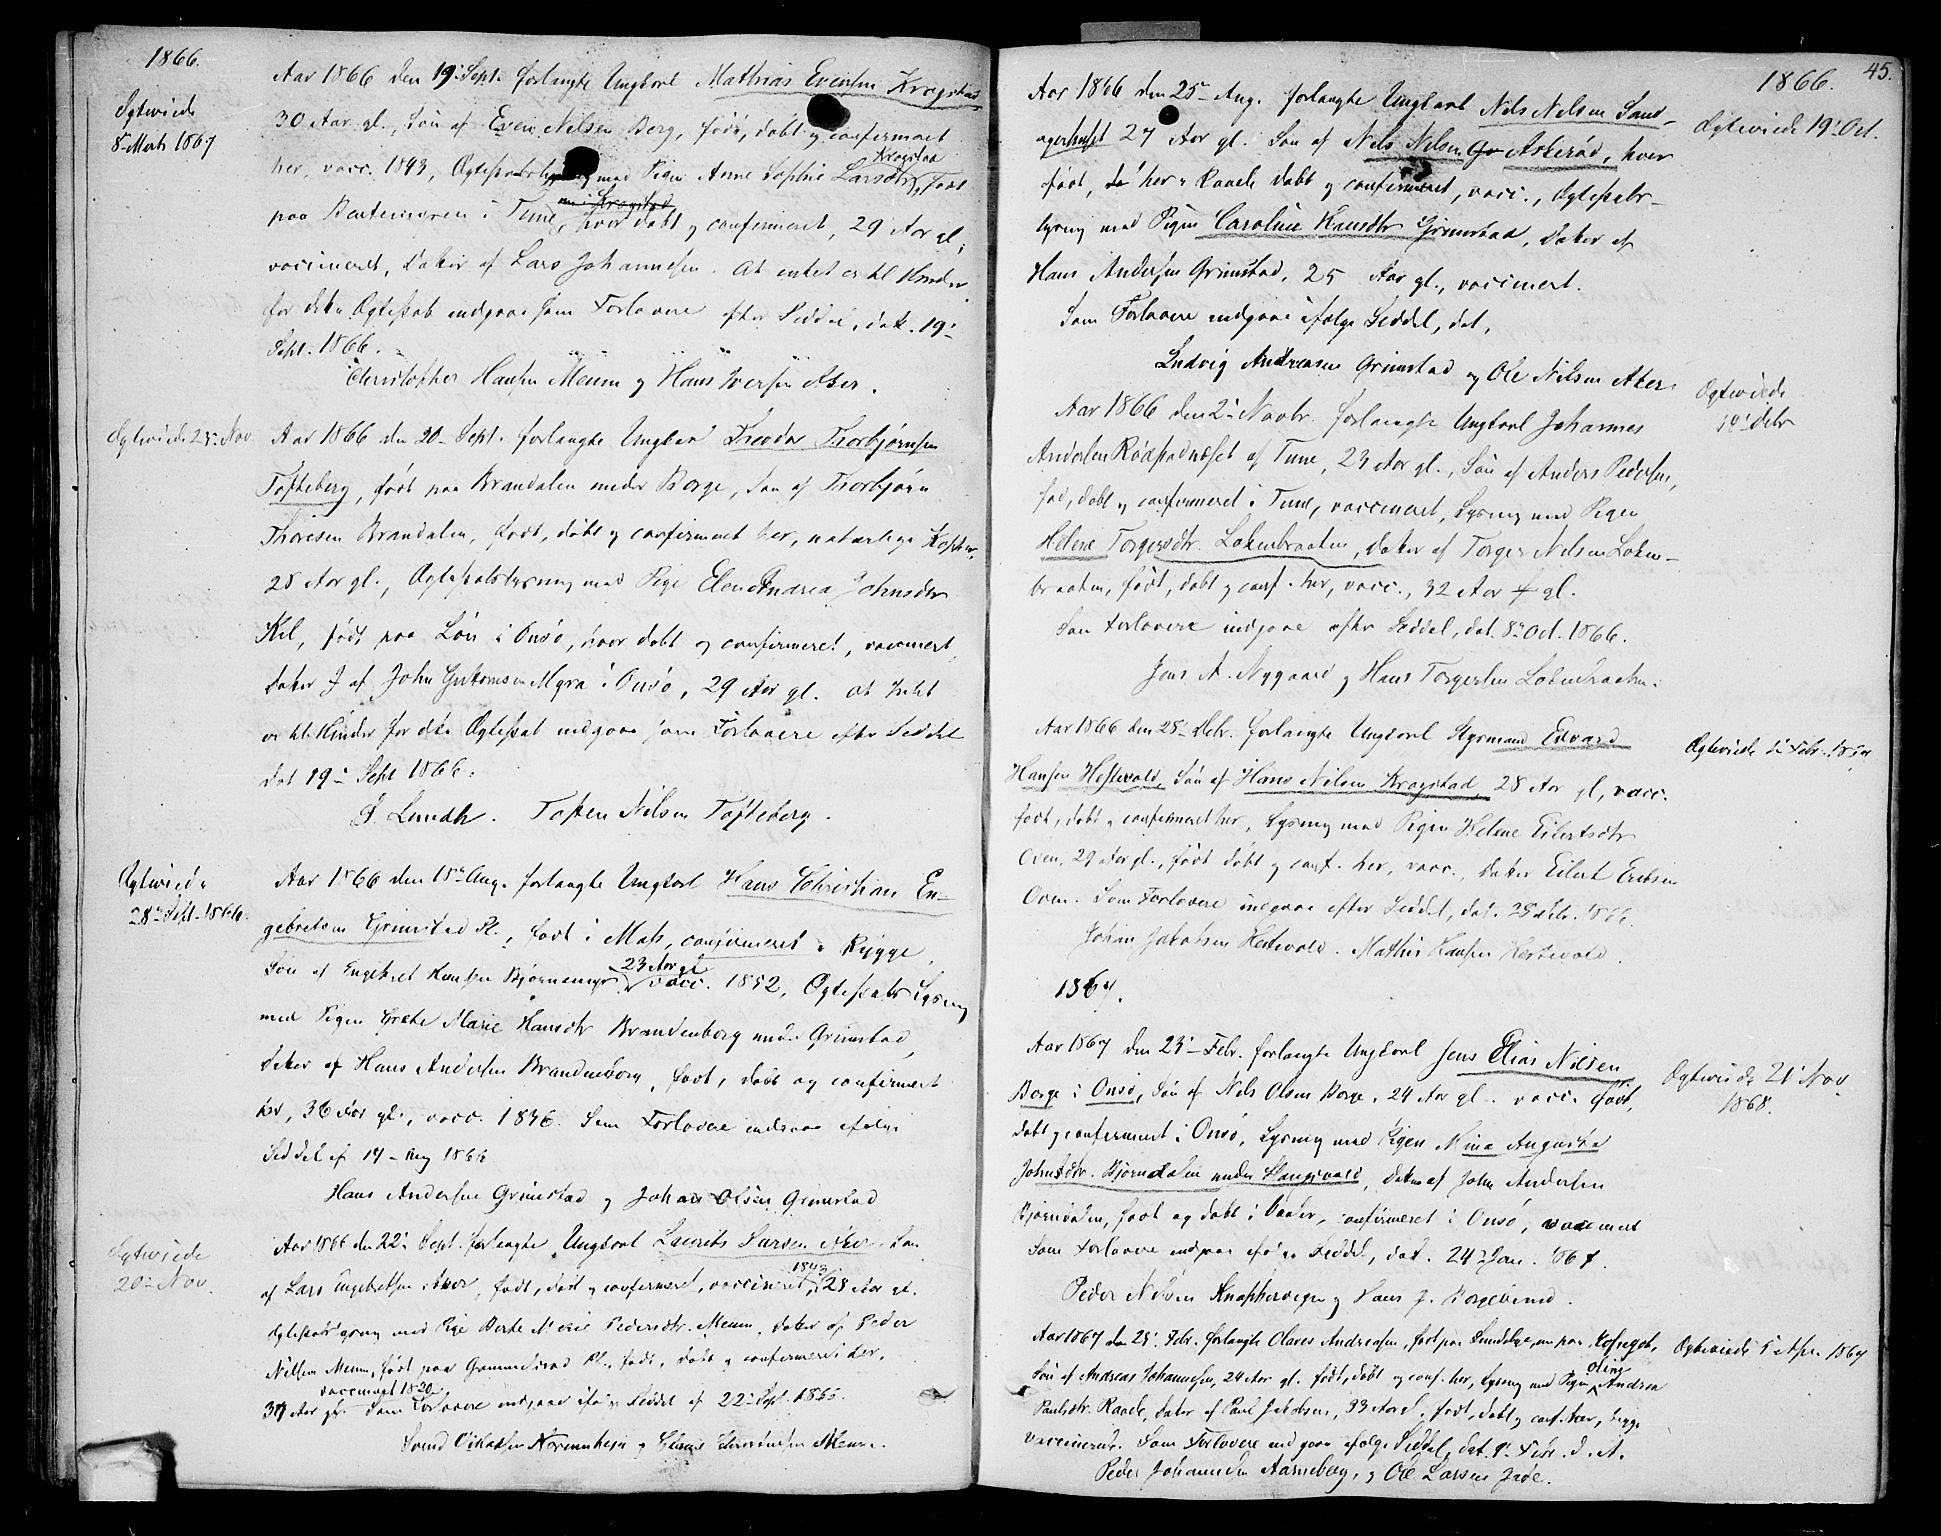 1866.
Aar 1866 den 19' Sept. forlangte Ungkarl Mathias Evensen Kragstad
Egteviede
8 Marts 1867
30 Aar gl., Søn af Even Nilsen Borg, født, døbt og confirmeret
her, vacc. 1843, med Pigen Anne Sophie Larsdtr Kragstad, født
paa i Tune, hvor døbt og confirmeret, 29 Aar gl.,
vaccineret, Datter af Lars Johannesen. At intet er til Hinder
for dette Egteskab indgaae som Forlovere efter Seddel, dat. 19'
Sept. 1866.
Christopher Hansen Menm og Hans Iversen Aker.
Egteviede 23' Nov.
Aar 1866 den 20' Sept. forlangte Ungkarl Theodor Thorbjørnsen
Tofteberg, født paa Brandalen under Borge, Søn af Thorbjørn
Thoresen Brandalen, født, døbt og confirmeret her, naturlige Kopper,
28 Aar gl., Egteskabslysning med Pige Elen Andrea Johnsdtr
Kil, født paa i Onsø, hvor døbt og confirmeret, vaccineret,
Datter af John Myra i Onsø, 29 Aar gl. At Intet
er til Hinder for dette Egteskab indgaae som Forlovere efter Seddel
dat 19' Sept 1866.
S. Lundh. Tosten Nilsen Tofteberg.
Egteviede
28' Sept. 1866.
Aar 1866 den 18' Aug. forlangte Ungkarl Hans Christian En-
gebretsen Grimstad Pl., født i Moss, confirmeret i Rygge,
Søn af Engebret Hansen Bjørnemyr, 23 Aar gl. vacc. 1852, Egteskabs Lysning
med Pigen Grethe Marie Hansdtr Brandenborg under Grimstad,
Datter af Hans Andersen Brandenborg, født, døbt og confirmeret
her, 36 Aar gl., vacc. 1836. Som Forlovere indgaae ifølge
Seddel af 14 Aug 1866
Hans Andersen Grimstad og Johan Olsen Grimstad
Egteviede
20' Nov.
Aar 1866 den 22' Sept. forlangte Ungkarl Laurits Larsen Søn
af Lars Engebretsen Aker, født, døbt og confirmeret, vaccineret 1843, 28 Aar gl.
Egteskabslysning med Pige Berte Marie Pedersdtr. Menm, Datter af Peder
Nilsen Menm, født paa Pl., født, døbt og confirmeret her,
Aar gl. Som Forlovere indgaae ifølge Seddel af 22' Sept. 1866.
Svend og Menm.
45.
1866.
Aar 1866 den 25' Aug. forlangte Ungkarl Nils Nilsen Sand-
agerhuset 27 Aar gl. Søn af Nils Nilsen Askerød, hver
Egteviede 19' Oct.
født, her i Raade døbt og confirmeret, vacc., Egteskabs-
lysning med Pigen Caroline Hansdtr Grimstad, Datter af
Hans Andersen Grimstad, 25 Aar gl., vaccineret.
Som Forlovere indgaae ifølge Seddel, dat.
Ludvig Andreasen Grimstad og Ole Nilsen Aker.
Egteviede
14' Debr
Aar 1866 den 2' Novbr. forlangte Ungkarl Johannes
Andersen Rødsodnæset af Tune, 23 Aar gl., Søn af Anders Pedersen,
fød, døbt og confirmeret i Tune, vaccineret, Lysning med Pigen
Helene Torgersdtr. Lokenbraaten, Datter af Torger Nilsen Loken-
braaten, født, døbt og conf. her, vacc., 32 Aar gl.
Som Forlovere indgaae efter Seddel, dat. 8' Oct. 1866.
Jens A. Nygaard og Hans Torgersen Lokenbraaten.
Aar 1866 den 28' Debr. forlangte Ungkarl Styrmand Edvard
Egteviede 1' Febr. 1867
Hansen Hestevold, Søn af Hans Nilsen Kragstad, 28 Aar gl, vacc.
født, døbt og confirmeret her, Lysning med Pigen Helene Eilertsdtr
Oven, 29 Aar gl., født døbt og conf. her, vacc., Datter Eilert Eriksen
Oven. Som Forlovere indgaae efter Seddel, dat. 28 Debr. 1866.
Johan Jakobsen Hestevold. Mathis Hansen Hestevold.
1867.
Aar 1867 den 23' Febr. forlangte Ungkarl Jens Elias Nilsen
Borge i Onsø, Søn af Nils Olsen Borge, 24 Aar gl. vacc. født,
Egteviede 21' Nov
1868.
døbt og confirmeret i Onsø, Lysning med Pigen Mina Augusta
Johnsdtr. Bjørndalen under Haugsvold, Datter af John Andersen
Bjørndalen, født og døbt i Vaaler, confirmeret i Onsø, vaccineret
Som Forlovere indgaae ifølge Seddel, dat. 24' Jan. 1867.
Peder Nilsen og Hans J. Borgesund.
Aar 1867 den 25' Febr. forlangte Olaves Andreasen, født paa nu paa
Egteviede 5' Apr. 1867
Søn af Andreas Johannesen, 24 Aar gl. født, døbt og conf. her, Lysning med Pigen Oline Andrea
Paulsdtr. Raade, Datter af Paul Jakobsen, 33 Aar gl. født, døbt og conf. her, begge
vaccinerede. Som Forlovere indgaae ifølge Seddel, dat. 9' Febr. d. A.
Peder Johannesen Aarneberg, og Ole Larsen